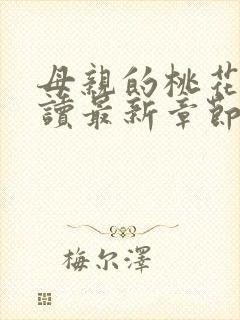 母親的桃花
讀最新章節
梅尔澤